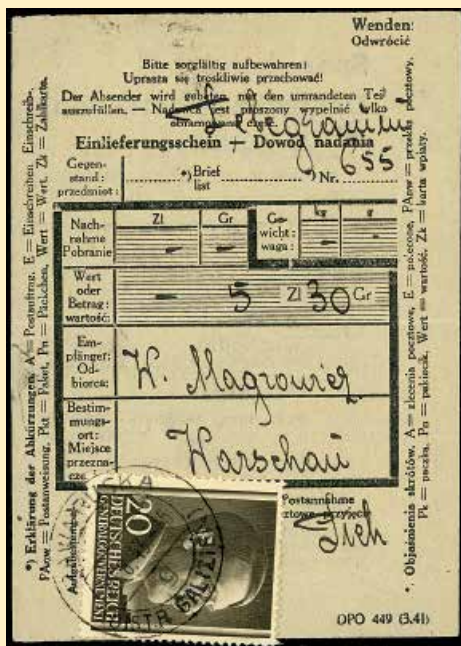 Wenden:
Odwrócić
Bitte sorgfältig aufbewahren!
Uprasza się troskliwie przechować!
Der Absender wird gebeten, nur den umrandeten Teil
auszufüllen. — Nadawca jest proszony wypełnić tylko
obramowaną część.
Einlieferungsschein — Dowód nadania
Gegen-
stand:
przedmiot:
*) Brief
list
*) Nr. 655
Nach-
nahme
Pobranie
Zl Gr
Ge-
wicht:
waga:
kg g
Wert
oder
Betrag:
wartość:
5 Zl 30 Gr
Em-
pfänger:
Od-
biorca:
W. Magrowicz
Bestim-
mungs-
ort:
Miejsce
przezna-
Warschau
Postannahme
DISTR. GALIZIEN
20
DEUTSCHES REICH
GENERALGOUVERNEMENT
DPO 449 (3.41)
*) Erklärung der Abkürzungen. A = Postauftrag, E = Einschreiben, Einschreib-,
PAnw = Postanweisung, Pkt = Paket, Pn = Päckchen, Wert = Wert, Zk = Zahlkarte.
*) Objaśnienia skrótów. A = zlecenia pocztowe, E = polecone, PAnw = przekaz pocztowy,
Pk = paczka, Pn = pakiecik, Wert = wartość, Zk = karta wpłaty.